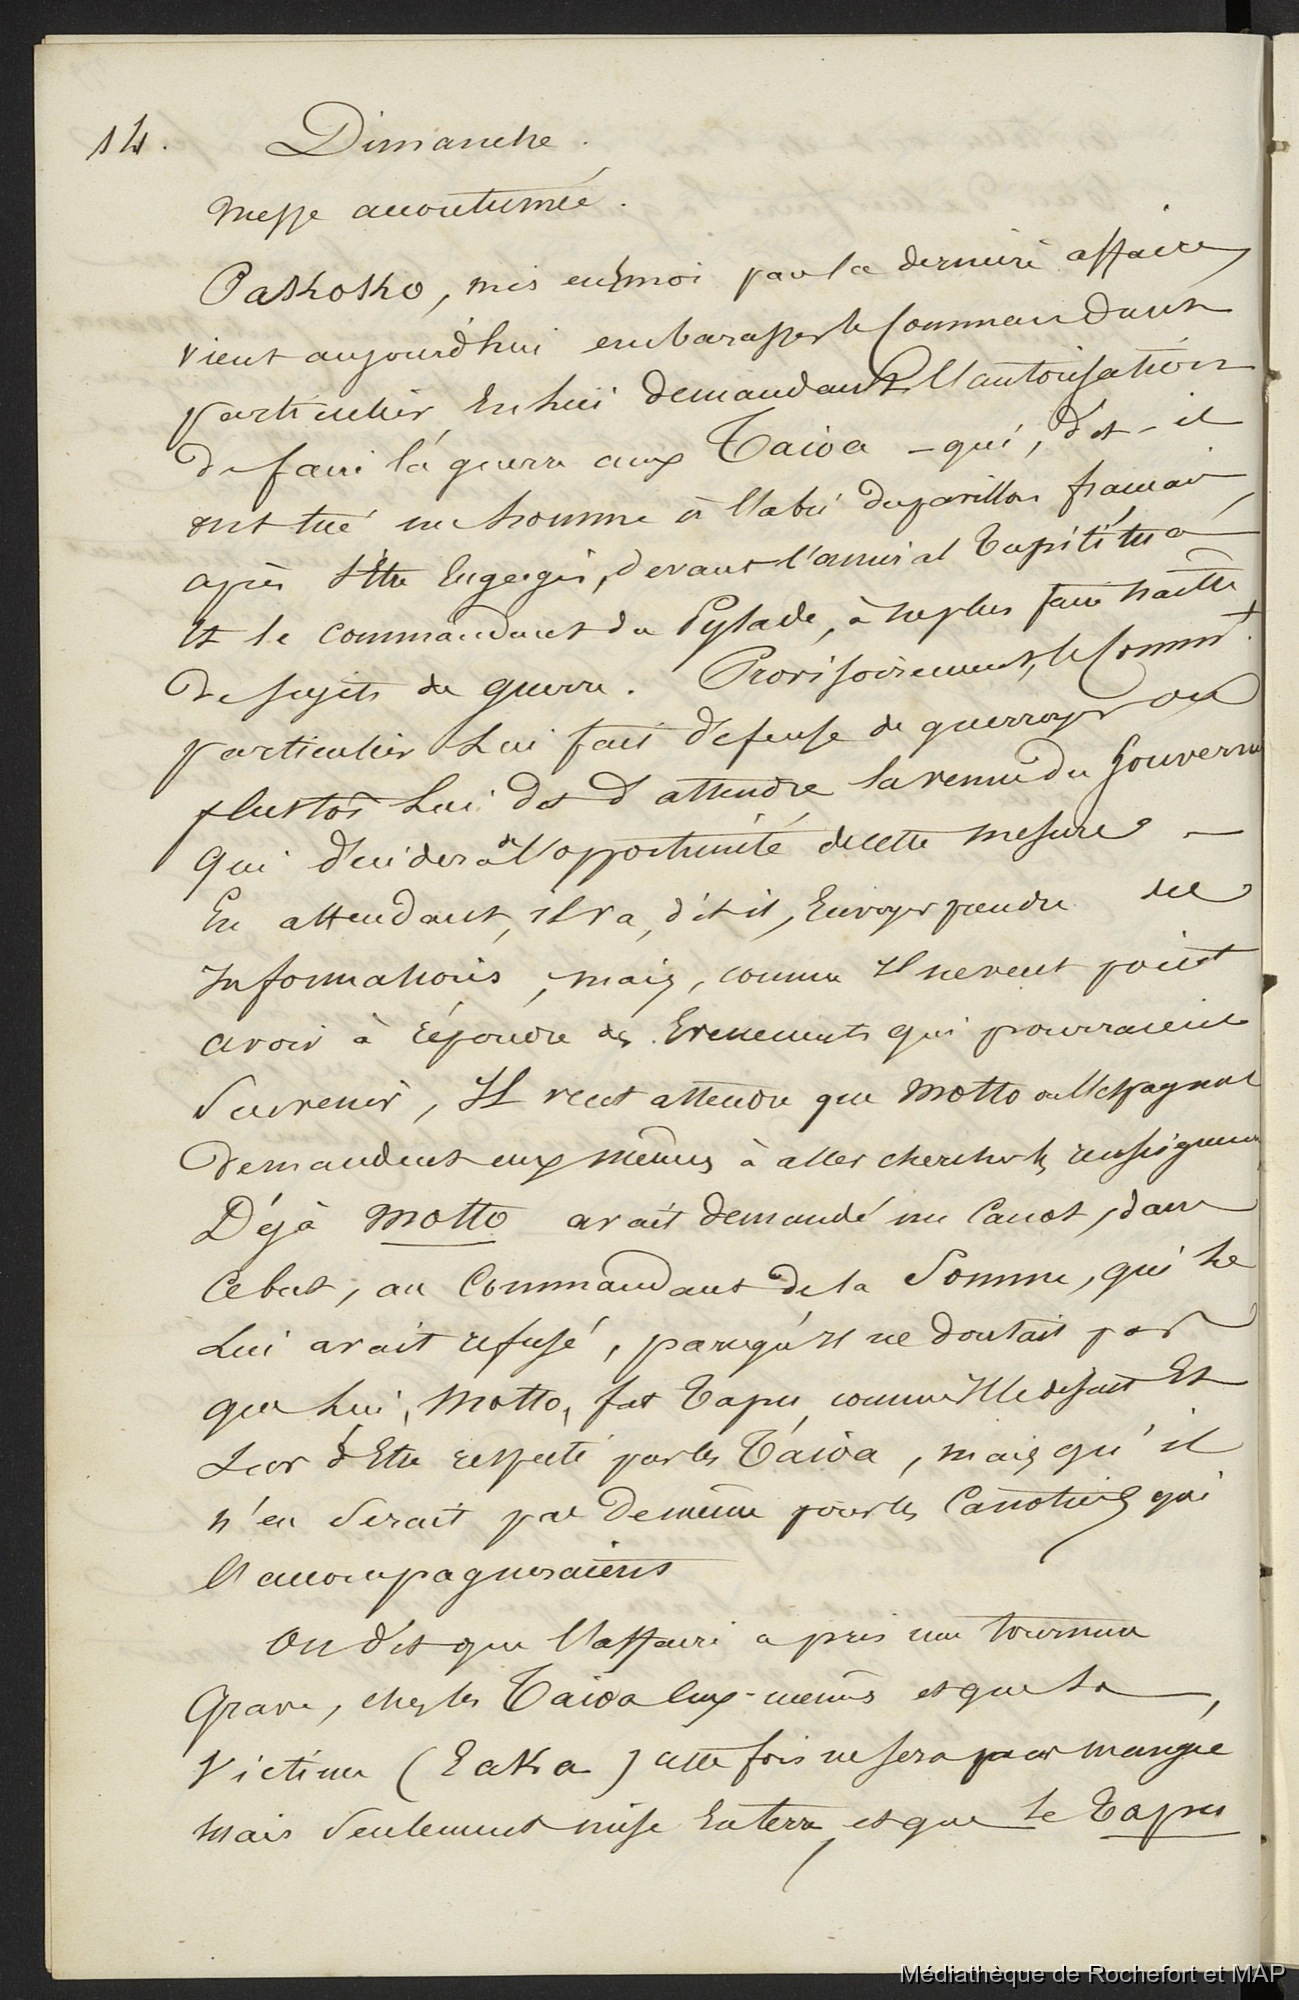 14. Dimanche.
Messe accoutumée.
Pakhokho, mis en émoi par la dernière affaire,
vient aujourd'hui embarasser le Commandant
particulier en lui demandant l'autorisation
de faire la guerre aux Taioa - qui, dit-il
ont tué un homme à l'abri du pavillon français,
après s'être engagés, devant l'amiral Dupetit thoua
et le commandant du Pylade, à ne plus faire naître
de sujets de guerre. Provisoirement, le Commt.
particulier lui fait défense de guerroyer ou
plustôt lui dit d'attendre la venue du Gouverne
qui décidera de l'opportunité de cette mesure -
En attendant, il va, dit-il, envoyer prendre des
informations, mais, comme il ne veut point
avoir à répondre des évenements qui pourraient
survenir, il veut attendre que Motto ou l'espagnol
demandent eux mêmes à aller chercher les renseignemen
Déjà Motto avait demandé un Canot, dans
ce but, au Commandant de la Somme, qui le
lui avait refusé, parcequ'il ne doutait pas
que lui, Motto, fut tapu comme il le disait et
sur d'être respecté par les Taioa, mais qu'il
n'en serait pas de même pour les Canotiers qui
l'accompagneraient
On dit que l'affaire a pris une tournure
grave, chez les Taioa eux-mêmes et que la,
Victime (Eaka) cette fois ne sera pas mangée
mais seulement mise en terre, et que le tapu
Médiathèque de Rochefort et MAP